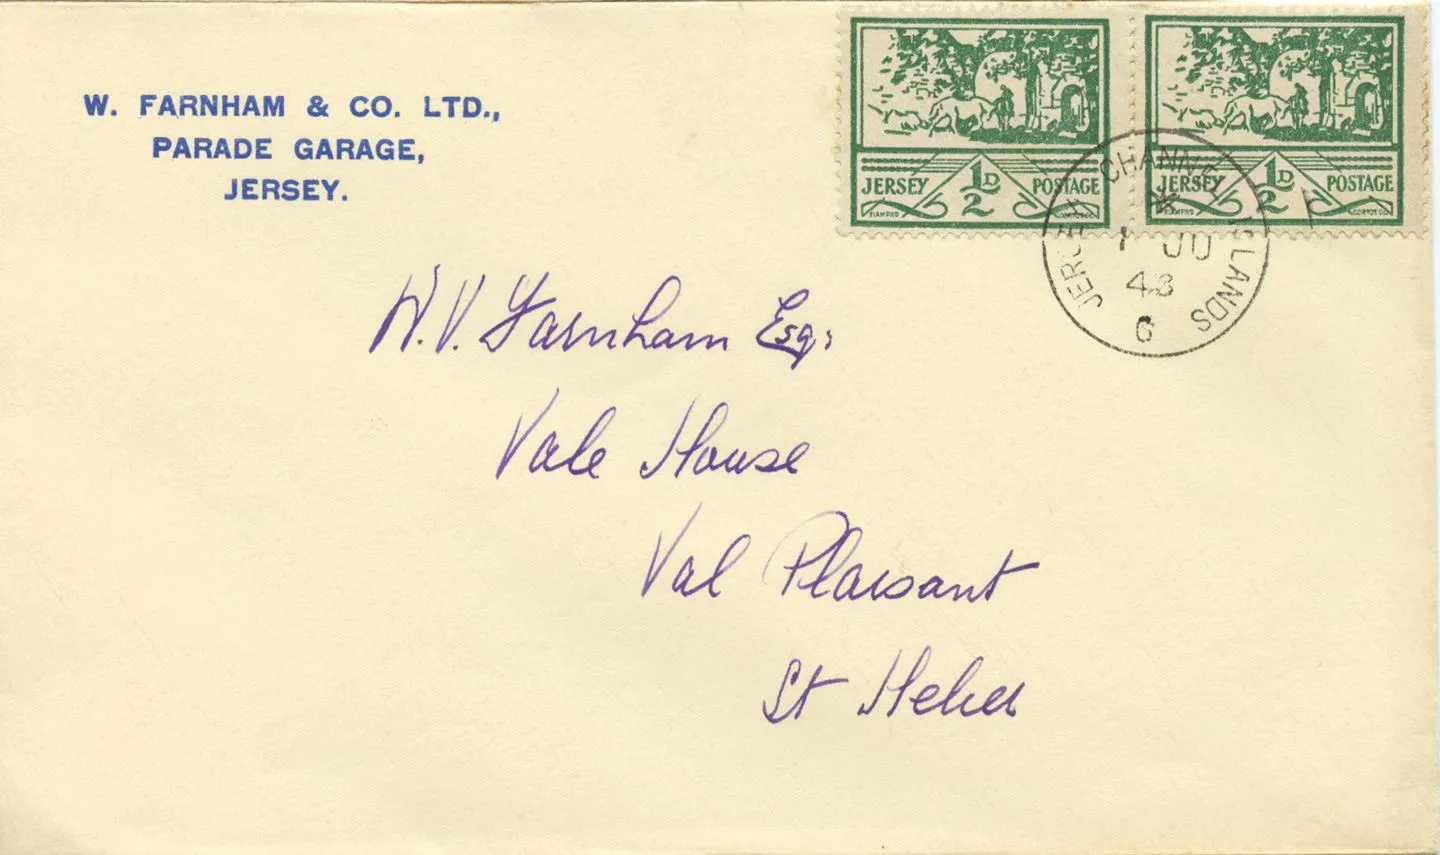 W. FARNHAM & CO. LTD.,
PARADE GARAGE,
JERSEY.
JERSEY ½D POSTAGE
BLAMPIED
JERSEY ½D POSTAGE
BLAMPIED
JERSEY CHANNEL ISLANDS
1 JU
43
W. V. Farnham Esq:
Vale House
Val Plaisant
St Helier